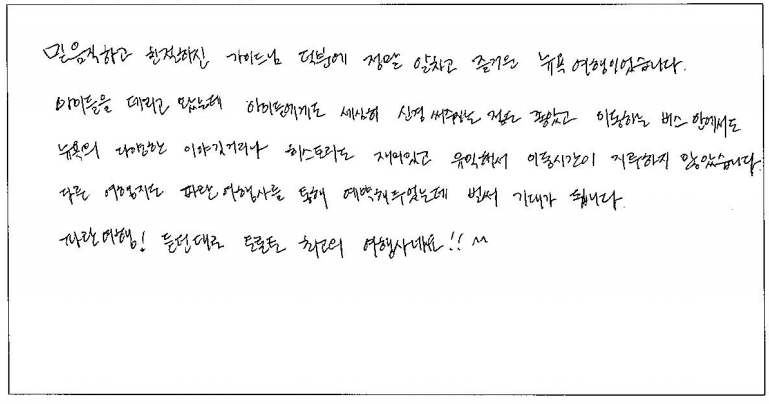 믿음직하고 친절하신 가이드님 덕분에 정말 알차고 즐거운 뉴욕 여행이었습니다.
아이들을 데리고 왔는데 아이들에게도 세심히 신경 써주시는 점도 좋았고 이동하는 버스 안에서도
뉴욕의 다양한 이야깃거리나 히스토리도 재미있고 유익해서 이동시간이 지루하지 않았습니다.
다른 여행지도 파란여행사를 통해 예약해두었는데 벌써 기대가 됩니다.
파란여행! 듣던대로 토론토 최고의 여행사네요!! ^^